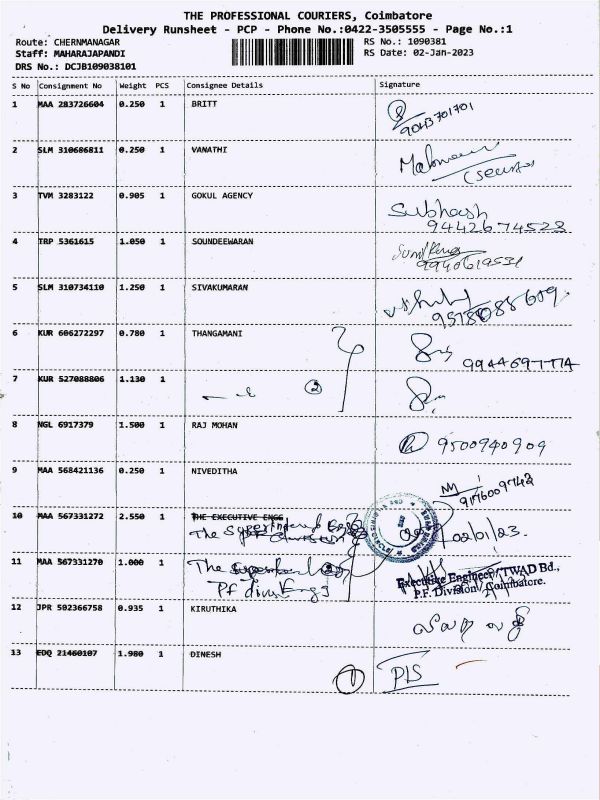 THE PROFESSIONAL COURIERS, Coimbatore
Delivery Runsheet - PCP - Phone No.:0422-3505555 - Page No.:1
Route: CHERNMANAGAR RS No.: 1090381
Staff: MAHARAJAPANDI RS Date: 02-Jan-2023
DRS No.: DCJB109038101
S No Consignment No Weight PCS Consignee Details Signature
1 MAA 283726604 0.250 1 BRITT
9043701701
2 SLM 310686811 0.250 1 VANATHI
3 TVM 3283122 0.905 1 GOKUL AGENCY Subhash
94426 74523
4 TRP 5361615 1.050 1 SOUNDEEWARAN
9940619531
5 SLM 310734110 1.250 1 SIVAKUMARAN
6 KUR 606272297 0.780 1 THANGAMANI
9944697774
7 KUR 527088806 1.130 1 2
8 NGL 6917379 1.500 1 RAJ MOHAN 9500940909
9 MAA 568421136 0.250 1 NIVEDITHA
9176009742
10 MAA 567331272 2.550 1 THE EXECUTIVE ENGG
The 02/01/23.
11 MAA 567331270 1.000 1 The
Executive Engineer/TWAD Bd.,
P.F. Division, Coimbatore.
12 JPR 502366758 0.935 1 KIRUTHIKA
13 EDQ 21460107 1.980 1 DINESH
1